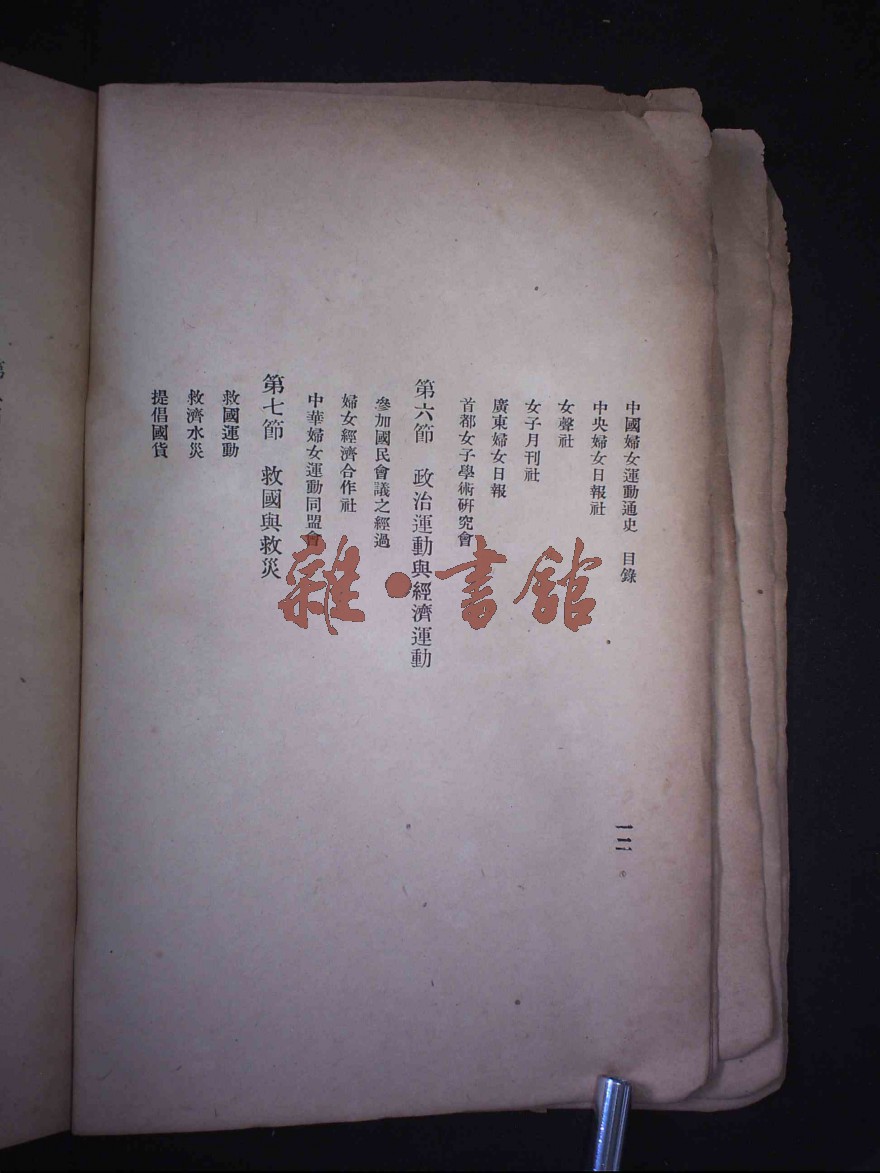 中國婦女運動通史 目錄
一二
中央婦女日報社
女聲社
女子月刊社
廣東婦女日報
首都女子學術研究會
第六節 政治運動與經濟運動
參加國民會議之經過
婦女經濟合作社
中華婦女運動同盟會
第七節 救國與救災
救國運動
救濟水災
提倡國貨
雜·書館